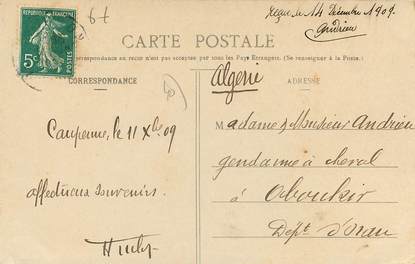 67
Reçue le 14 Décembre 1909.
Andrieu
REPUBLIQUE FRANÇAISE
5c
POSTES
CARTE POSTALE
correspondance au recto n'est pas acceptée par tous les Pays Etrangers. (Se renseigner à la Poste.)
CORRESPONDANCE
Algérie
ADRESSE
Caupenne, le 11 Xbre 09
affectueux souvenirs.
Madame & Monsieur Andrieu
gendarme à cheval
à Aboukir
Dépt d'Oran